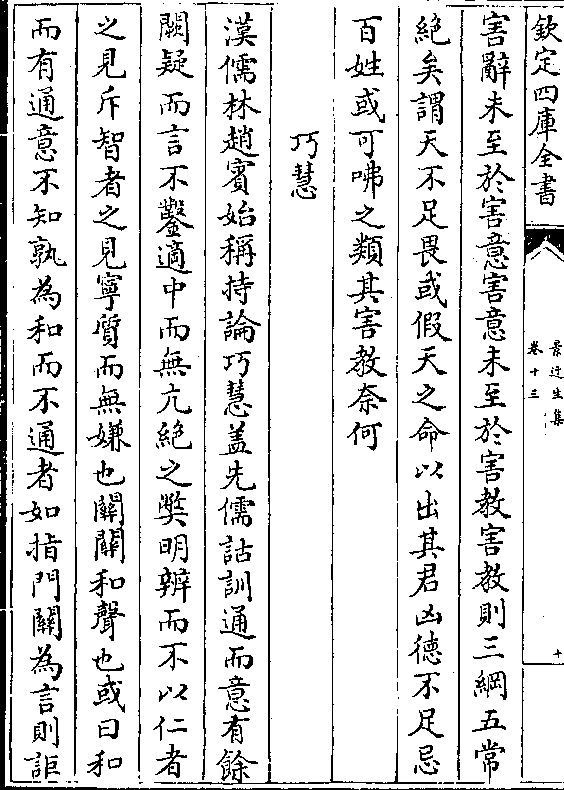 欽定四庫全書
景迂生集
卷十三
十
害辭未至於害意害意未至於害教害教則三綱五常
絶矣謂天不足畏或假天之命以出其君凶德不足忌
百姓或可咈之類其害教奈何
巧慧
漢儒林趙賓始稱持論巧慧盖先儒詁訓通而意有餘
闕疑而言不鑿適中而無亢絶之獘明辨而不以仁者
之見斥智者之見寧質而無嫌也關關和聲也或曰和
而有通意不知孰為和而不通者如指門關為言則詎